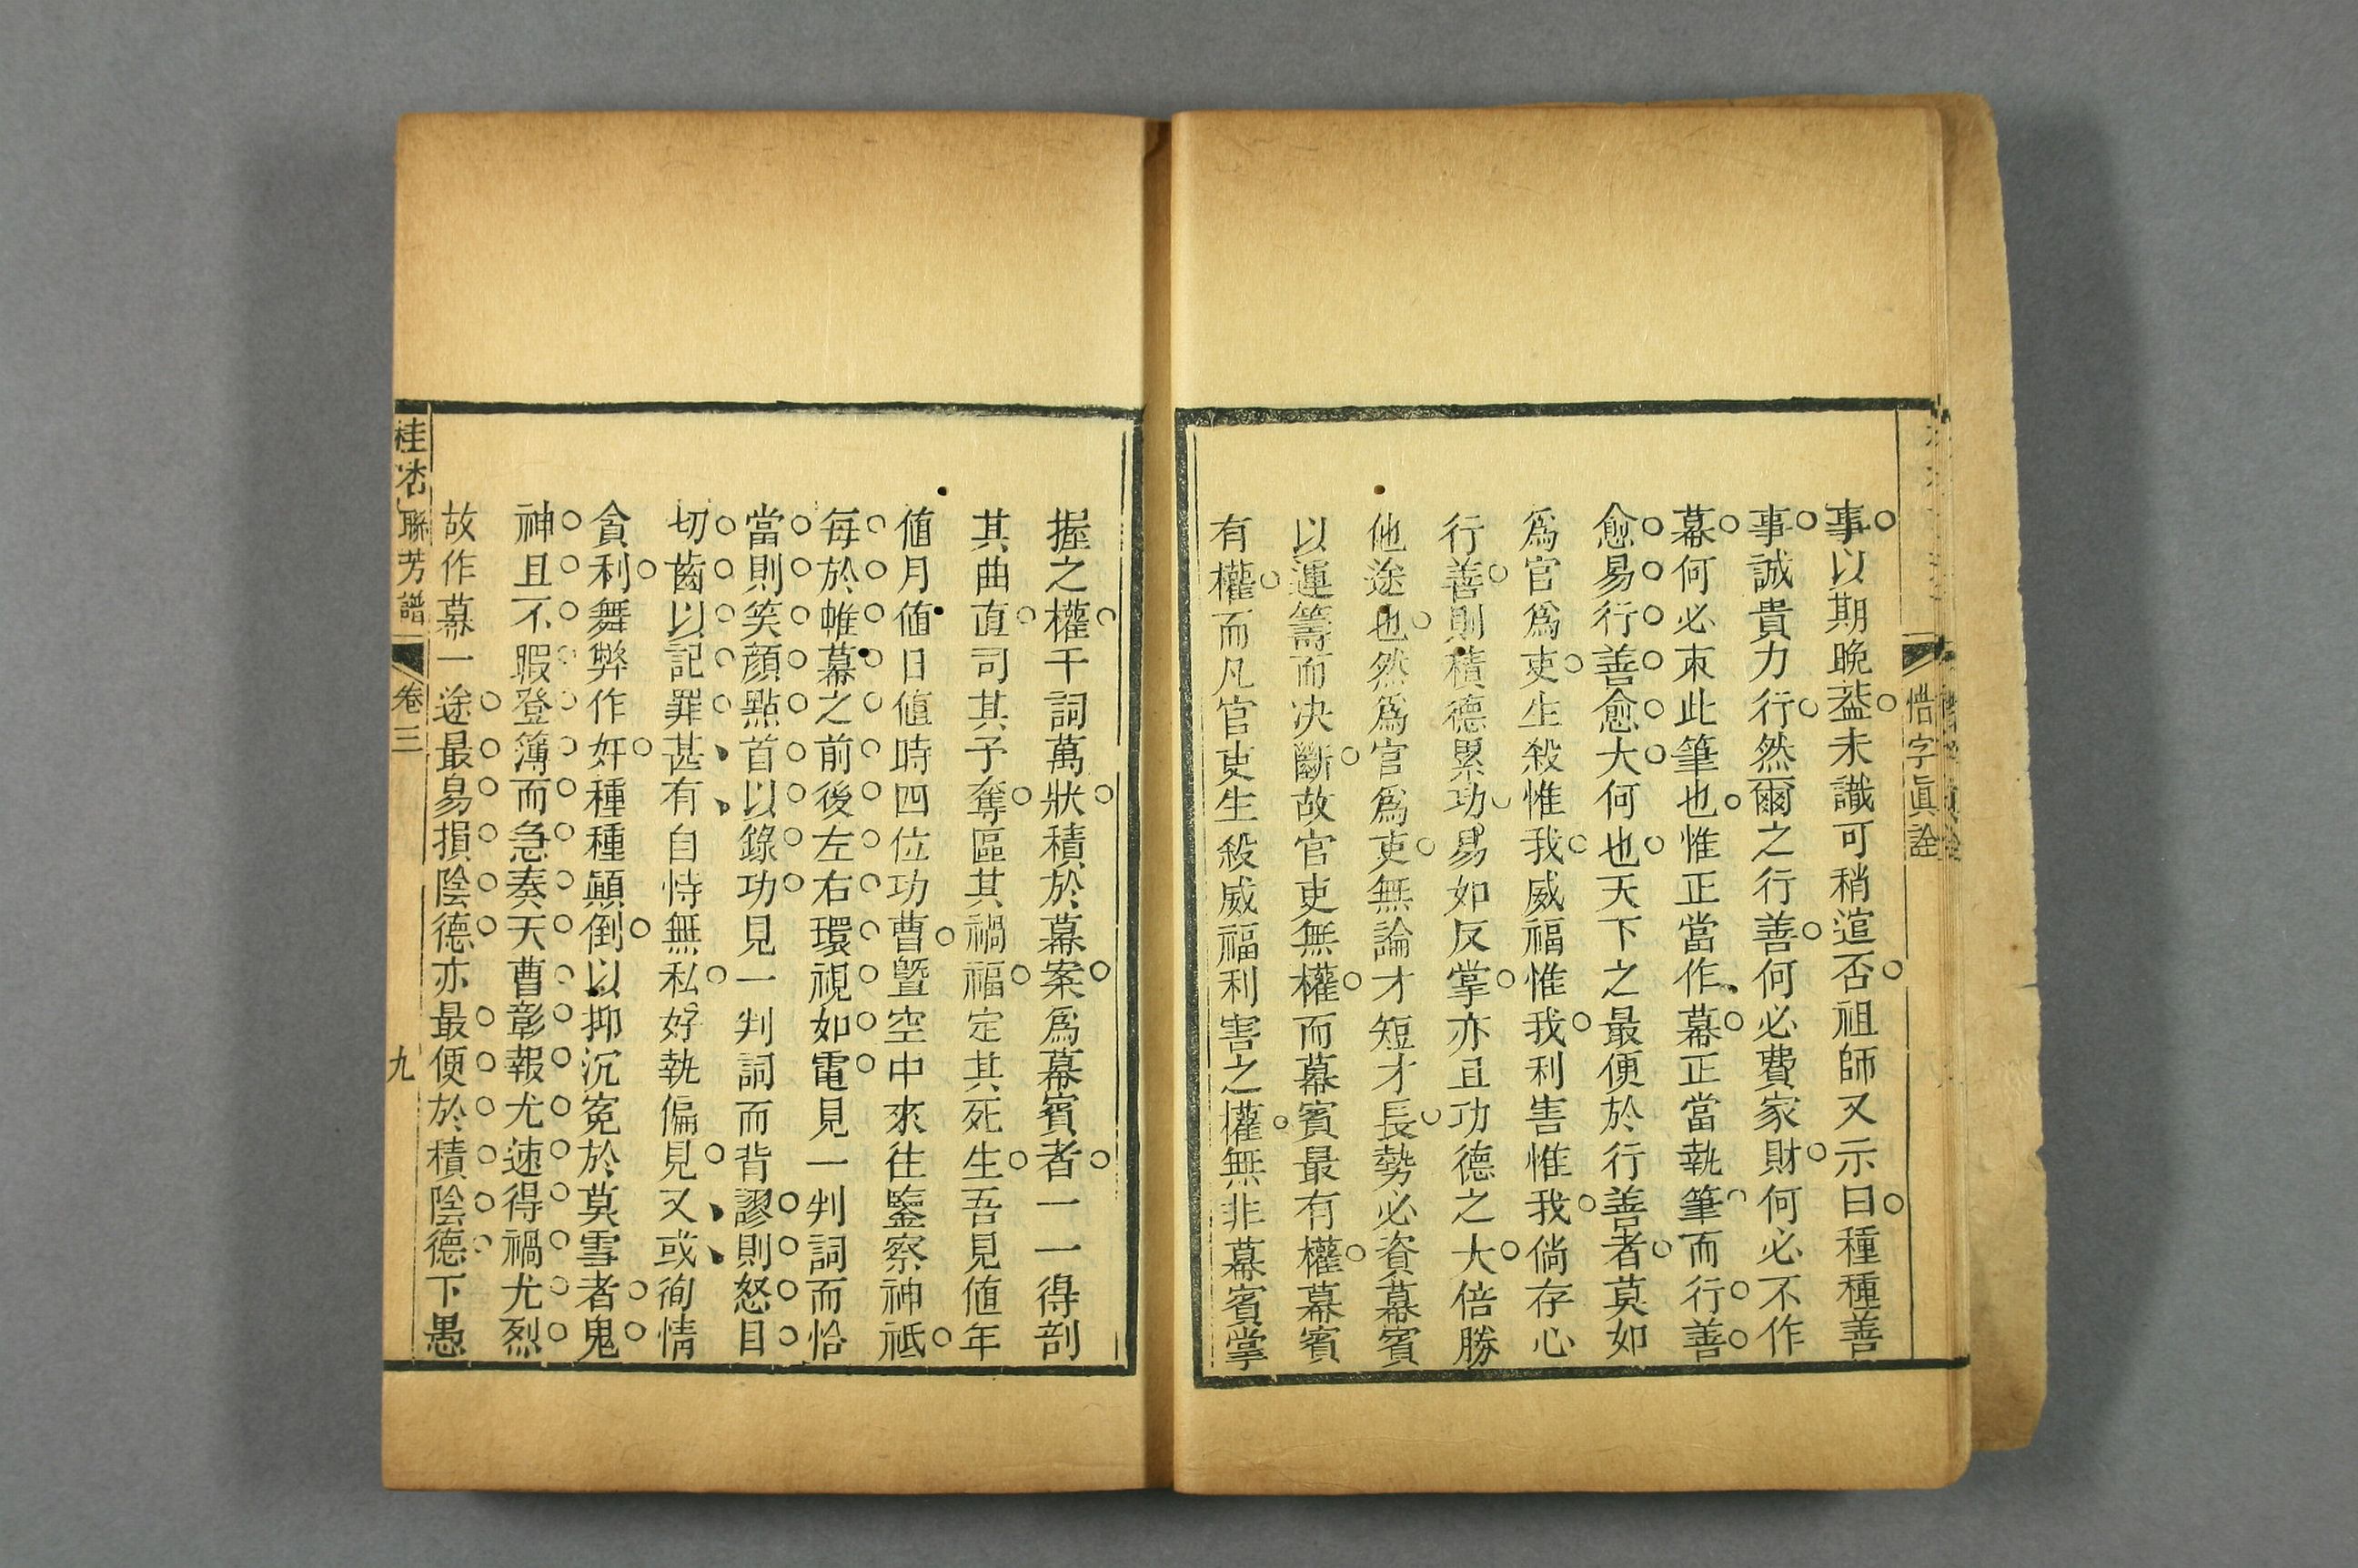 惜字眞詮
事以期晩葢未識可稍逭否祖師又示曰種種善
事誠貴力行然爾之行善何必費家財何必不作
幕何必束此筆也惟正當作幕正當執筆而行善
愈易行善愈大何也天下之最便於行善者莫如
爲官爲吏生殺惟我威福惟我利害惟我倘存心
行善則積德累功易如反掌亦且功德之大倍勝
他途也然爲官爲吏無論才短才長勢必資幕賓
以運籌而决斷故官吏無權而幕賓最有權幕賓
有權而凡官吏生殺威福利害之權無非幕賓掌
握之權千詞萬狀積於幕案爲幕賓者一一得剖
其曲直司其予奪區其禍福定其死生吾見値年
値月値日値時四位功曹曁空中來往鑒察神祗
每於帷幕之前後左右環視如電見一判詞而恰
當則笑顏點首以錄功見一判詞而背謬則怒目
切齒以記罪甚有自恃無私好執偏見又或徇情
貪利舞弊作奸種種顚倒以抑沉寃於莫雪者鬼
神且不暇登簿而急奏天曹彰報尤速得禍尤烈
故作幕一途最易損陰德亦最便於積陰德下愚
桂㳫聯芳譜
卷三
九